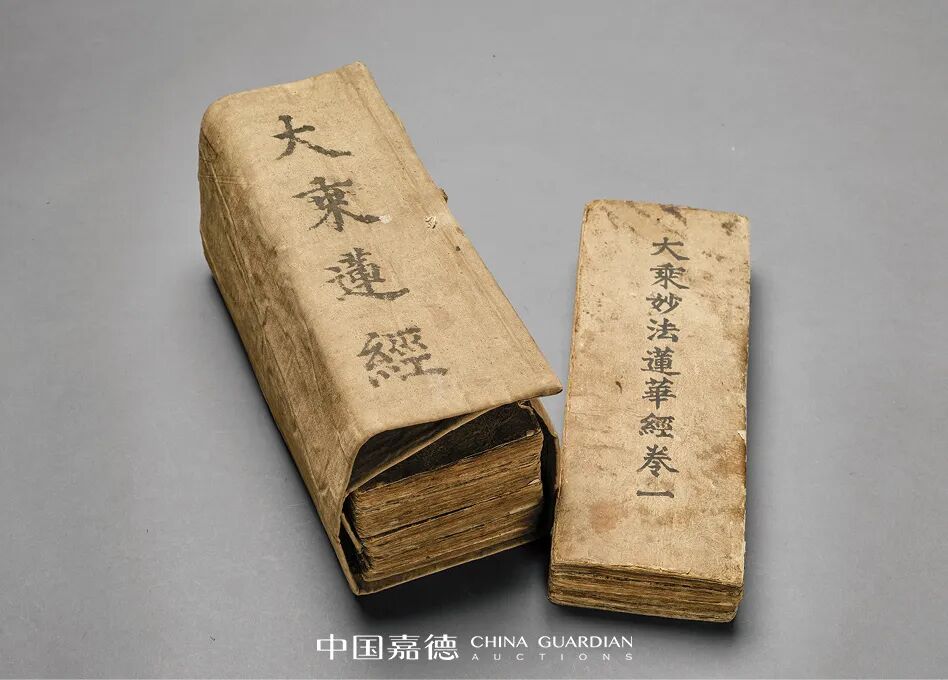 大乗蓮經
大乗妙法蓮華經卷一
中国嘉德 CHINA GUARDIAN
AUCTIONS